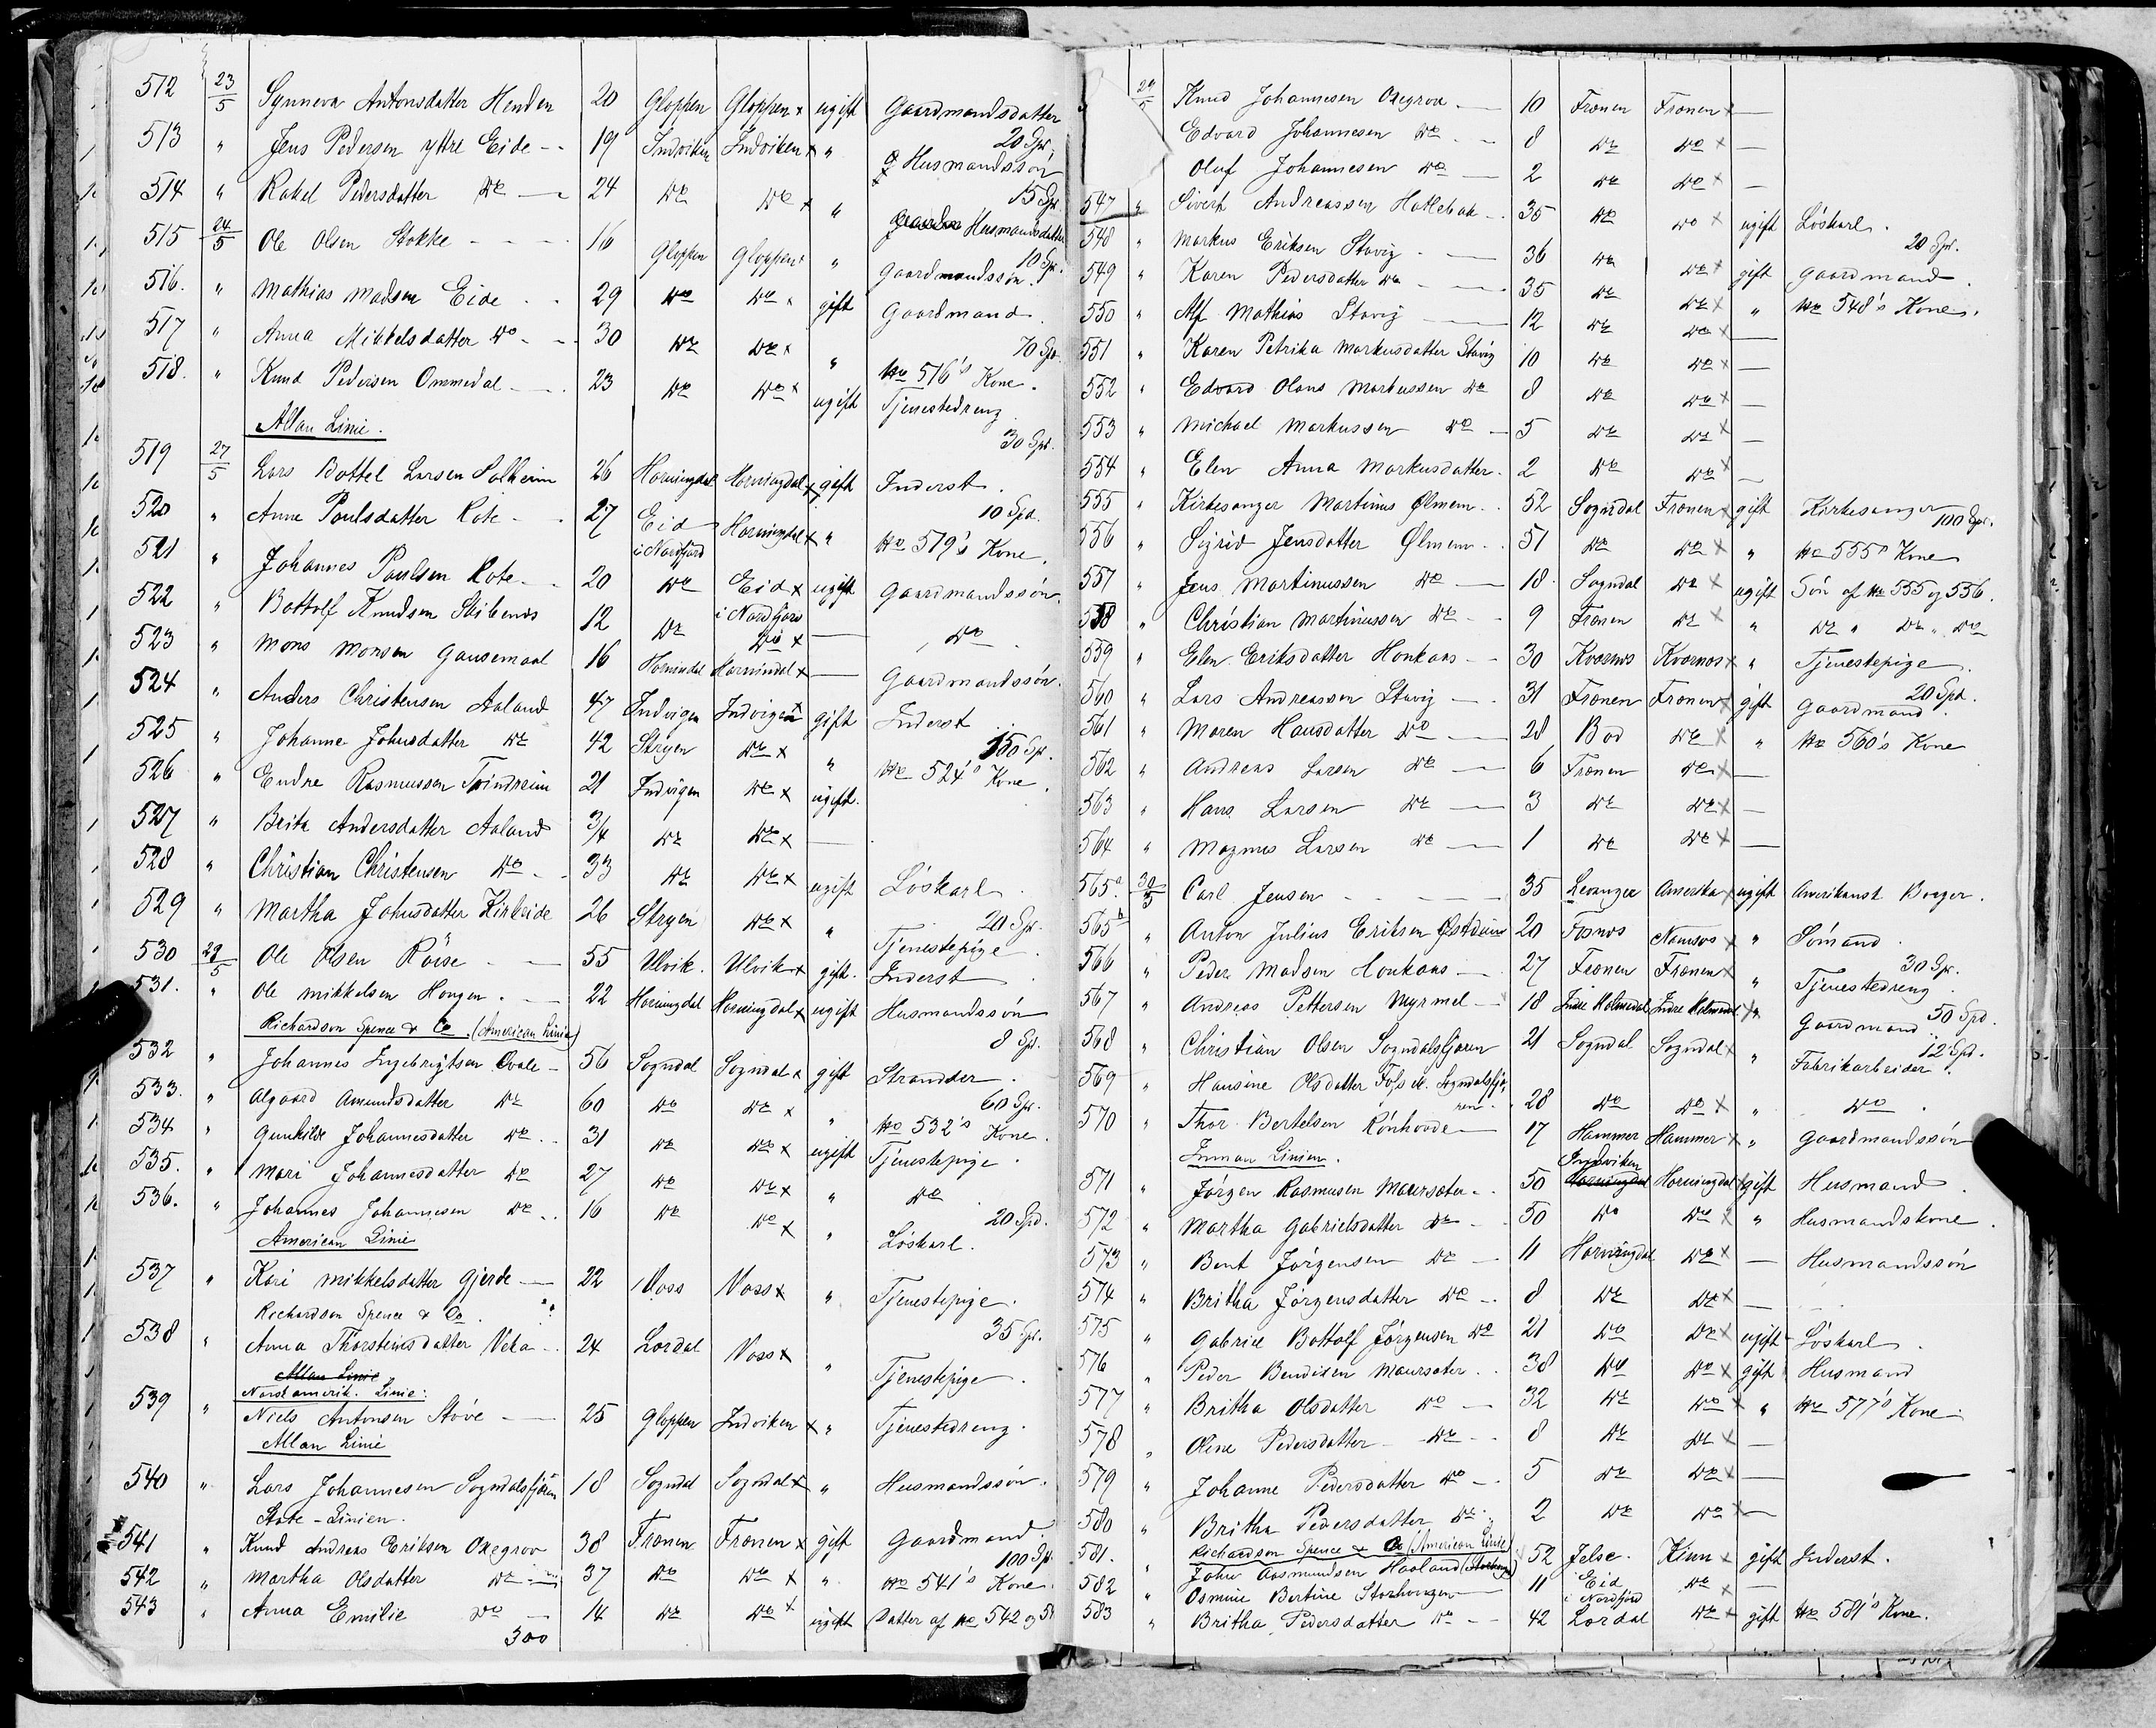 512 23/5 Synneva Antonsdatter Henden 20 Gloppen Gloppen x ugift Gaardmandsdatter
20 Spd.
513 " Jens Pedersen yttre Eide - - 19 Indviken Indviken x " Husmandssøn
15 Spd.
514 " Rakel Pedersdatter Do — 24 Do Do x " Husmandsdatter
10 Spd.
515 24/5 Ole Olsen Stokke - - - 16 Gloppen Gloppen x " Gaardmandssøn.
516. " Mathias Madsen Eide - - 29 Do Do x gift Gaardmand.
70 Spd.
517 " Anna Mikkelsdatter Do - - 30 Do Do x " No 516's Kone.
518. " Knud Pedersen Ommedal - - 23 Do Do x ugift Tjenestedreng
30 Spd.
Allan Linie.
519 27/5 Lars Bottel Larsen Solheim 26 Horningdal Horningdal x gift Inderst.
10 Spd.
520 " Anne Poulsdatter Rote - - 27 Eid i Nordfjord Horningdal x " No 519's Kone.
521 " Johannes Poulsen Rote - - 20 Do Eid i Nordfjord x ugift Gaardmandssøn.
522 " Bottolf Knudsen Skibenes 12 Do Do x — Do
523 " Mons Monsen Gausemaal 16 Hornindal Hornindal x — Gaardmandssøn.
524 " Anders Christensen Aaland 47 Indvigen Indvigen x gift Inderst
150 Spd.
525 " Johanne Johnsdatter Do 42 Stryen Do x " No 524's Kone.
526 " Endre Rasmussen Tvindreim 21 Indvigen Do x ugift.
527 " Brita Andersdatter Aaland 3/4 Do Do x —
528 " Christian Christensen Do - - 33 Do Do x ugift Løskarl
20 Spd.
529 " Martha Johnsdatter Kirkeide 26 Stryen Do x " Tjenestepige.
530 29/5 Ole Olsen Röise - — 55 Ulvik. Ulvik x gift. Inderst
531. " Ole Mikkelsen Hougen. — 22 Horningdal Horningdal x ugift Husmandssøn
8 Spd.
Richardson Spence & Co (American Linie)
532 " Johannes Ingebrigtsen Qvale - 56 Sogndal Sogndal x gift Strandder.
60 Spd.
533. " Algaard Amundsdatter Do 60 Do Do x " No 532's Kone.
534 " Gunhilde Johannesdatter Do - - 31 Do Do x ugift Tjenestepige.
535. " Mari Johannesdatter Do 27 Do Do x " Do
20 Spd.
536. " Johannes Johannesen Do - - 16 Do Do x " Løskarl.
American Linie
537 " Kari Mikkelsdatter Gjerde — 22 Voss Voss x " Tjenestepige.
35 Spd.
Richardson Spence & Co.
538 " Anna Thorsteinsdatter Veka - - 24 Lærdal Voss x " Tjenestepige.
Allan Linie
Norskamerik. Linie:
539 " Niels Antonsen Støve — 25 Gloppen Indviken x " Tjenestedreng.
Allan Linie
540 " Lars Johannesen Sogndalsfjæren 18 Sogndal Sogndal x " Husmandssøn.
State-Linien.
541 " Knud Andreas Eriksen Oxegrov 38 Frænen Frænen x gift Gaardmand.
100 Spd.
542 " Martha Olsdatter Do — 37 Do Do x " No 541's Kone.
543 " Anna Emilie Do — 14 Do Do x ugift Datter af No 542 og 5
300
29/5 Knud Johannesen Oxegrov. — 10 Frænen Frænen x —
Edvard Johannesen Do - — 8 Do Do x —
Oluf Johannesen Do — 2 Do Do x —
547 " Sivert Andreassen Hatlebak - - 35 Do Do x ugift Løskarl.
20 Spd.
548 " Markus Eriksen Stavig - — 36 Do Do x gift Gaardmand.
549 " Karen Pedersdatter Do - — 35 Do Do x " No 548's Kone.
550 " Alf Mathias Stavig — 12 Do Do x —
551 " Karen Petrika Markusdatter Stavig 10 Do Do x —
552 " Edvard Olaus Markussen Do 8 Do Do x —
553 " Michael Markussen Do — 5 Do Do x —
554 " Elen Anna Markusdatter. 2 Do Do x —
555 " Kirkesanger Martinus Ølmem - - 52 Sogndal Frænen x gift Kirkesanger
100 Spd.
556 " Sigrid Jensdatter Ølmem - - 51 Do Do x " No 555's Kone
557 " Jens Martinussen Do — 18. Sogndal Do x ugift Søn af No 555 og 556.
558 " Christian Martinussen Do - - 9 Frænen Do x " Do " Do " Do
559 " Elen Eriksdatter Honkaas - - 30 Kværnes Kværnes x " Tjenestepige.
20 Spd.
560 " Lars Andreassen Stavig — 31 Frænen Frænen x gift Gaardmand.
561 " Maren Hansdatter Do — 28 Bod Do x " No 560's Kone
562 " Andreas Larsen Do — 6 Frænen Do x —
563 " Hans Larsen Do — 3 Do Do x —
564 " Magnus Larsen Do — 1 Do Do x —
565a 30/5 Carl Jensen - - - — 35 Levanger Amerika x ugift Amerikansk Borger.
565b " Anton Julius Eriksen Østduun 20 Fosnæs Namsos x " Sømand.
30 Spd.
566 " Peder Madsen Honkaas — 27 Frænen Frænen x " Tjenestedreng
50 Spd.
567 " Andreas Pettersen Myrmel - - 18 Indre Holmedal Indre Holmedal x " Gaardmand.
12 Spd.
568 " Christian Olsen Sogndalsfjæren 21 Sogndal Sogndal x " Fabrikarbeider.
569 " Hansine Olsdatter Foss el. Sogndalsfjæ-
ren - 28 Do Do x " Do.
570 " Thor Bertelsen Rønhovde — 17 Hammer Hammer x " Gaardmandssøn
Inman Linien.
Indviken
571 " Jørgen Rasmusen Maursæter - - 50 Horningdal Horningdal x gift Husmand.
572 " Martha Gabrielsdatter Do - - 50 Do Do x " Husmandskone.
573 " Bent Jørgensen Do — 11 Horningdal Do x — Husmandssøn
574 " Britha Jørgensdatter Do - - 8 Do Do x —
575 " Gabriel Bottolf Jørgensen Do 21 Do Do x ugift Løskarl.
576 " Peder Bendixen Maursæter - - 38 Do Do x gift Husmand
577 " Britha Olsdatter Do — 32 Do Do x " No 577's Kone.
578 " Oline Pedersdatter - Do - - 8 Do Do x —
579 " Johanne Pedersdatter Do - - 5 Do Do x —
580 " Britha Pedersdatter Do - - 2 Do Do x —
Richardson Spence & Co (American Linie)
581. " John Aasmundsen Haaland (Storhoug) 52 Jelse. Kinn x gift Inderst.
582 " Osmine Bertine Storhougen — 11 Eid i Nordfjord Do x —
583 " Britha Pedersdatter Do - - 42 Lærdal Do x gift No 581's Kone.